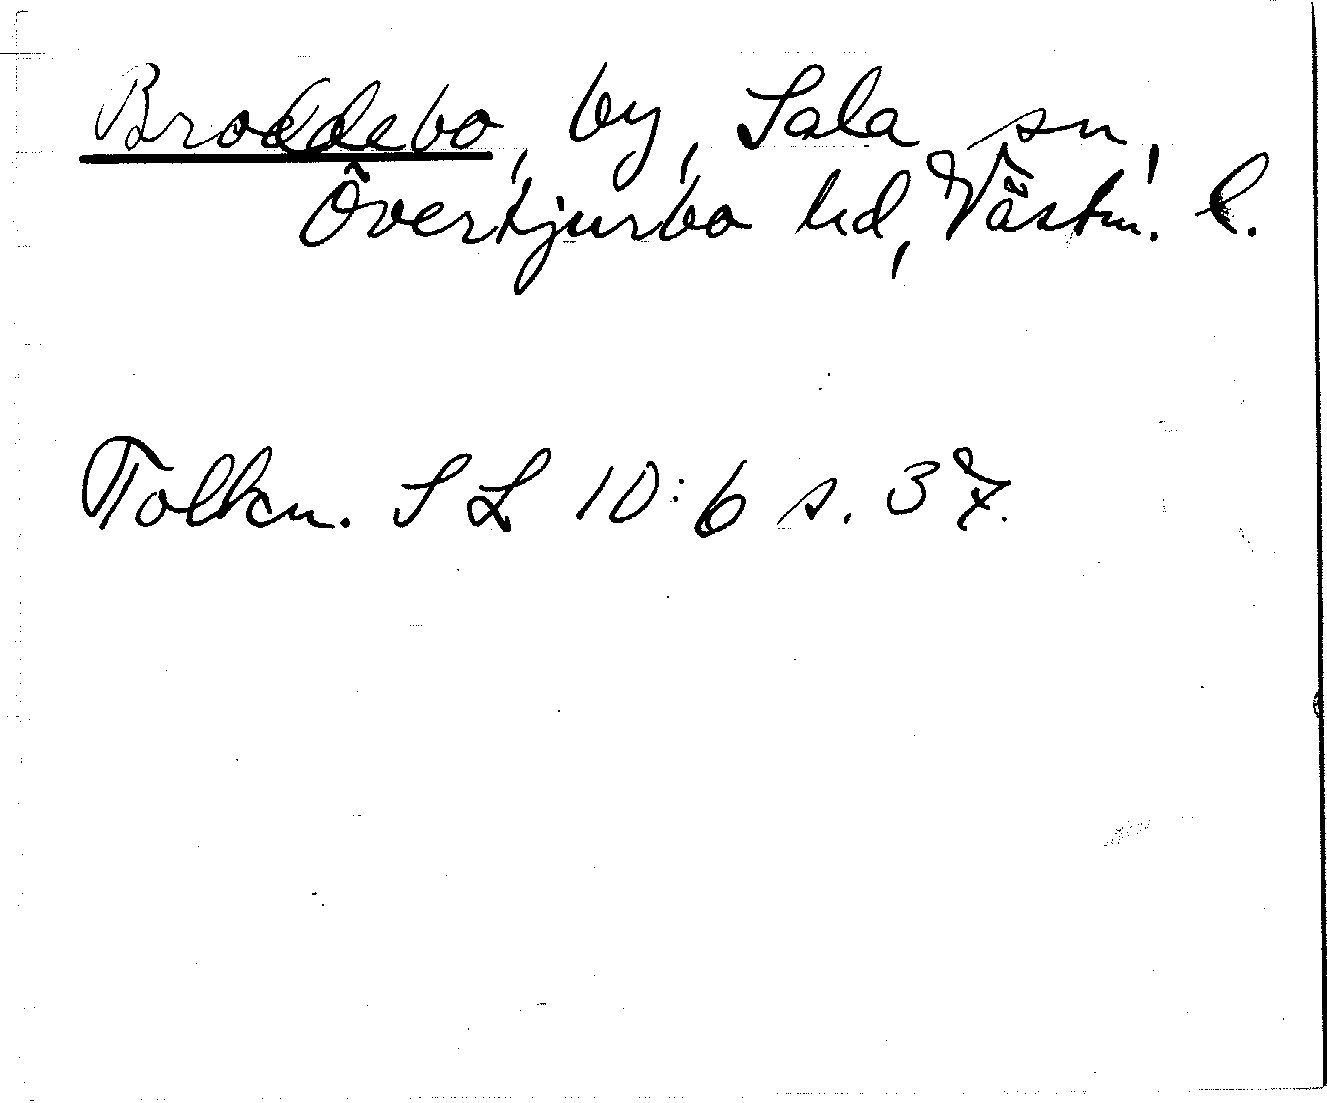 Broddebo, by, Sala sn,
Övertjurbo hd, Västm. l.
Tolkn. SL 10:6 s. 37.